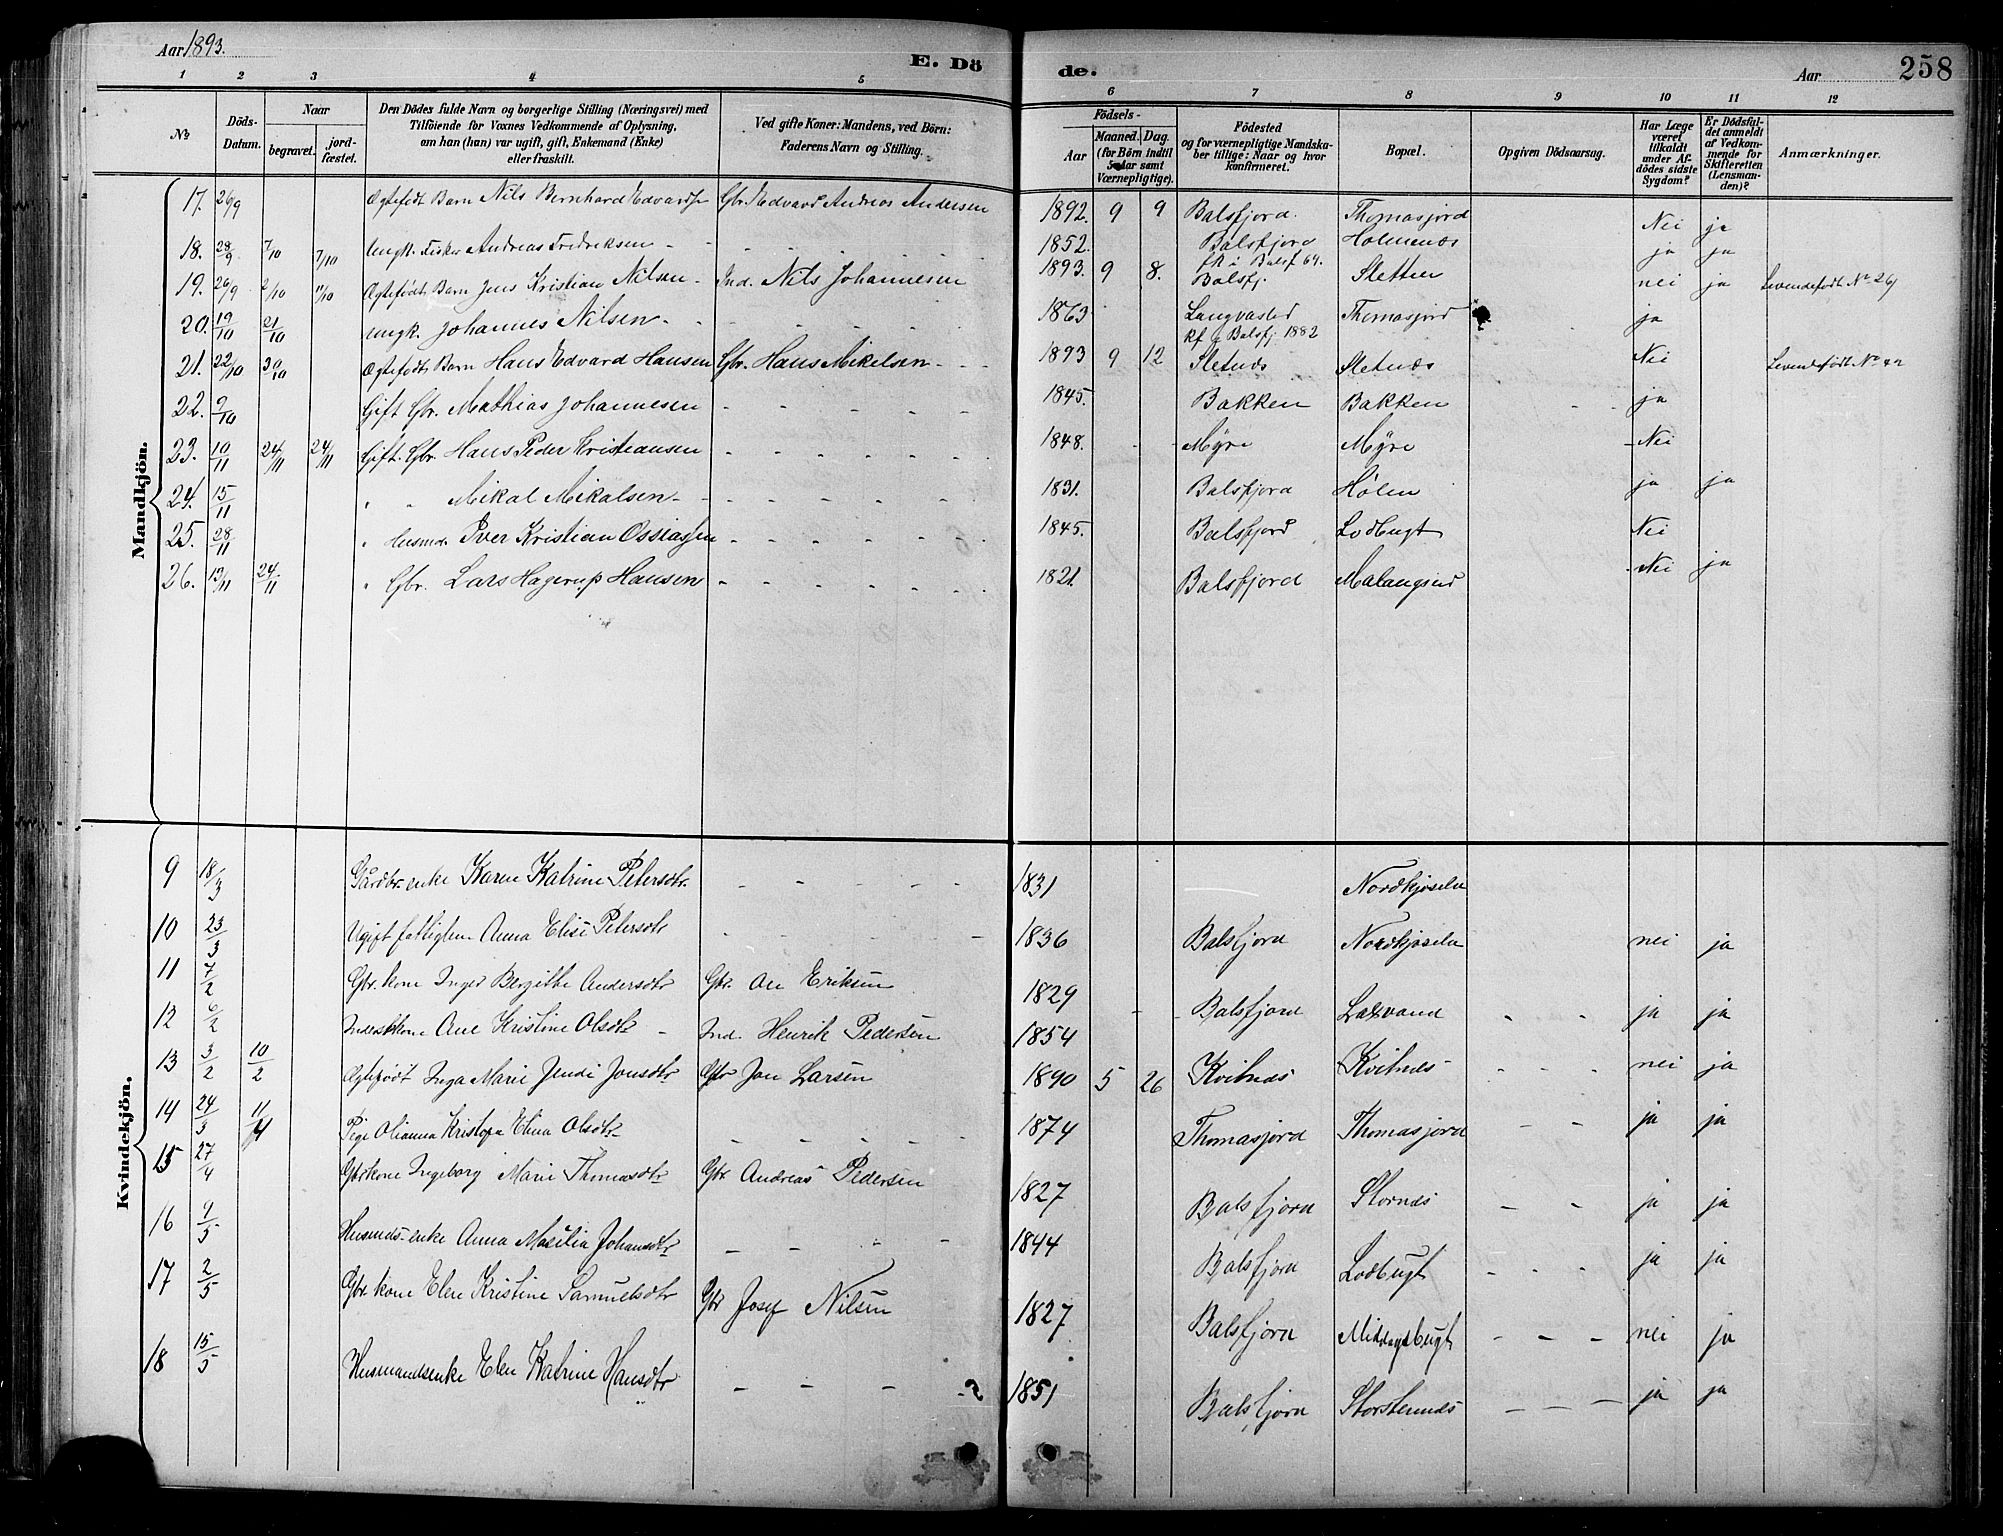 Aar 1893. E. Dö de. Aar 258
1 2 3 4 5 6 7 8 9 10 11 12
No
Döds-Datum.
Naar
begravet.
jord-fæstet.
Den Dödes fulde Navn og borgerlige Stilling (Næringsvei) med
Tilföiende for Voxnes Vedkommende af Oplysning,
om han (han) var ugift, gift, Enkemand (Enke)
eller fraskilt.
Ved gifte Koner: Mandens, ved Börn:
Faderens Navn og Stilling.
Födsels-
Aar
Maaned. Dag.
(for Börn indtil
5 Aar samt
Værnepligtige).
Födested
og for værnepligtige Mandska-
ber tillige: Naar og hvor
konfirmeret.
Bopæl.
Opgiven Dödsaarsag.
Har Læge
været
tilkaldt
under Af-
dödes sidste
Sygdom?
Er Dödsfal-
det anmeldt
af Vedkom-
mende for
Skifteretten
(Lensman-
den)?
Anmærkninger.
Mandkjön.
17. 26/9 Ægtefødt Barn Nils Bernhard Edvards Gbr. Edvard Andreas Andersen 1892. 9 9 Balsfjord. Thomasjord Nei ja
18. 28/9 7/10 7/10 Ungk. Fisker Andreas Fredriksen - - - - 1852. Balsfjord Holmenæs ja ja
fk i Balsf 69.
19. 26/9 2/10 11/10 Ægtefødt Barn Jens Kristian Nilsen - Ind. Nils Johannesen 1893. 9 8. Balsfj. Sletten nei ja Levendefødt No 26
20. 19/10 21/10 ungk. Johannes Nilsen - - - - 1863 Langvasted Thomasjord ja
kf i Balsfj. 1882
21. 22/10 30/10 Ægtefødt Barn Hans Edvard Hansen Gbr. Hans Mikelsen - - - 1893 9 12 Sletnæs Sletnæs Nei Levendefødt No 42
22. 9/10 Gift Gbr. Mathias Johannesen - - - - 1845. Bakken Bakken ja
23. 10/11 24/11 24/11 Gift. Gbr. Hans Peder Kristiansen - - - - 1848. Myre Myre Nei
24. 15/11 " " Mikal Mikalsen - - - - 1831. Balsfjord Hølen ja ja
25. 28/11 " Husmd. Iver Kristian Ossiassen - - - - 1845. Balsfjord Lodbugt Nei
26. 13/11 24/11 " Gbr. Lars Hagerup Hansen - - - - 1821. Balsfjord Malangseid Nei ja
Kvindekjön.
9 18/3 Gårdbr. enke Karen Katrine Petersdtr. - - - - 1831 Nordkjoselen
10 23/3 Ugift fattiglem Anna Elise Petersdtr - - - - 1836 Balsfjord Nordkjoselen nei ja
11 7/2 Gbr. kone Inger Bergithe Andersdtr Gbr. Ole Eriksen 1829 Balsfjord Laxvand - - - ja ja
12 6/2 Inderstkone Ane Kristine Olsdtr - Ind. Henrik Pedersen 1854
13 3/2 10/2 Ægtefødt Inga Marie Jendi Jonsdtr Gbr Jon Larsen 1890 5 26 Kvitnæs Kvitnæs - - - nei ja
14 24/3 11/4 Pige Olianna Kristofa Elina Olsdtr - - - - 1874 Thomasjord Thomasjord - - ja ja
15 27/4 Gbrkone Ingeborg Marie Thomasdtr Gbr. Andreas Pedersen 1827 Balsfjord Stornæs - - ja ja
16 9/5 Husmds-enke Anna Masilia Johansdtr - - - - 1844 Balsfjord Lodbugt - - - ja ja
17 2/5 Gbr. kone Elen Kristine Samuelsdtr Gbr Josef Nilsen 1827 Balsfjord Middagsbugt - - - nei ja
18 15/5 Husmandsenke Elen Katrine Hansdtr - - - - 1851 Balsfjord Storstennæs - - - ja ja